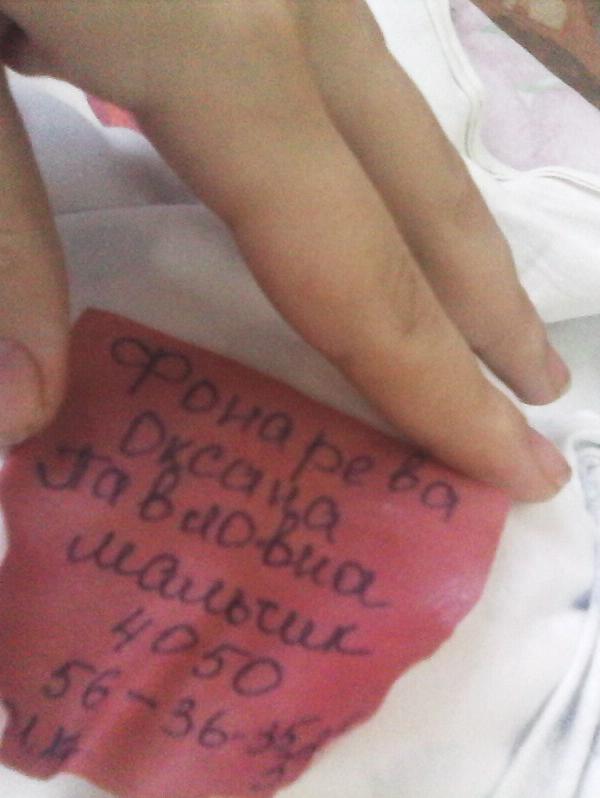 Фонарева
Оксана
Павловна
мальчик
4050
56-36-35